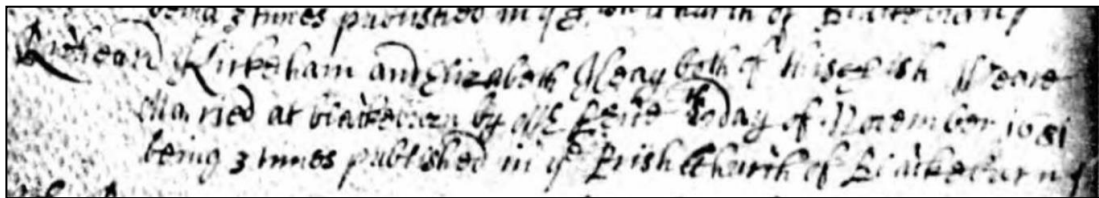 being 3 times published in ye church of Blackeburn
Richard Kirkeham and Elizabeth both of this Prish Weare
Married at blackeburn by day of November 1651
being 3 times published in ye Prish Church of Blackeburn